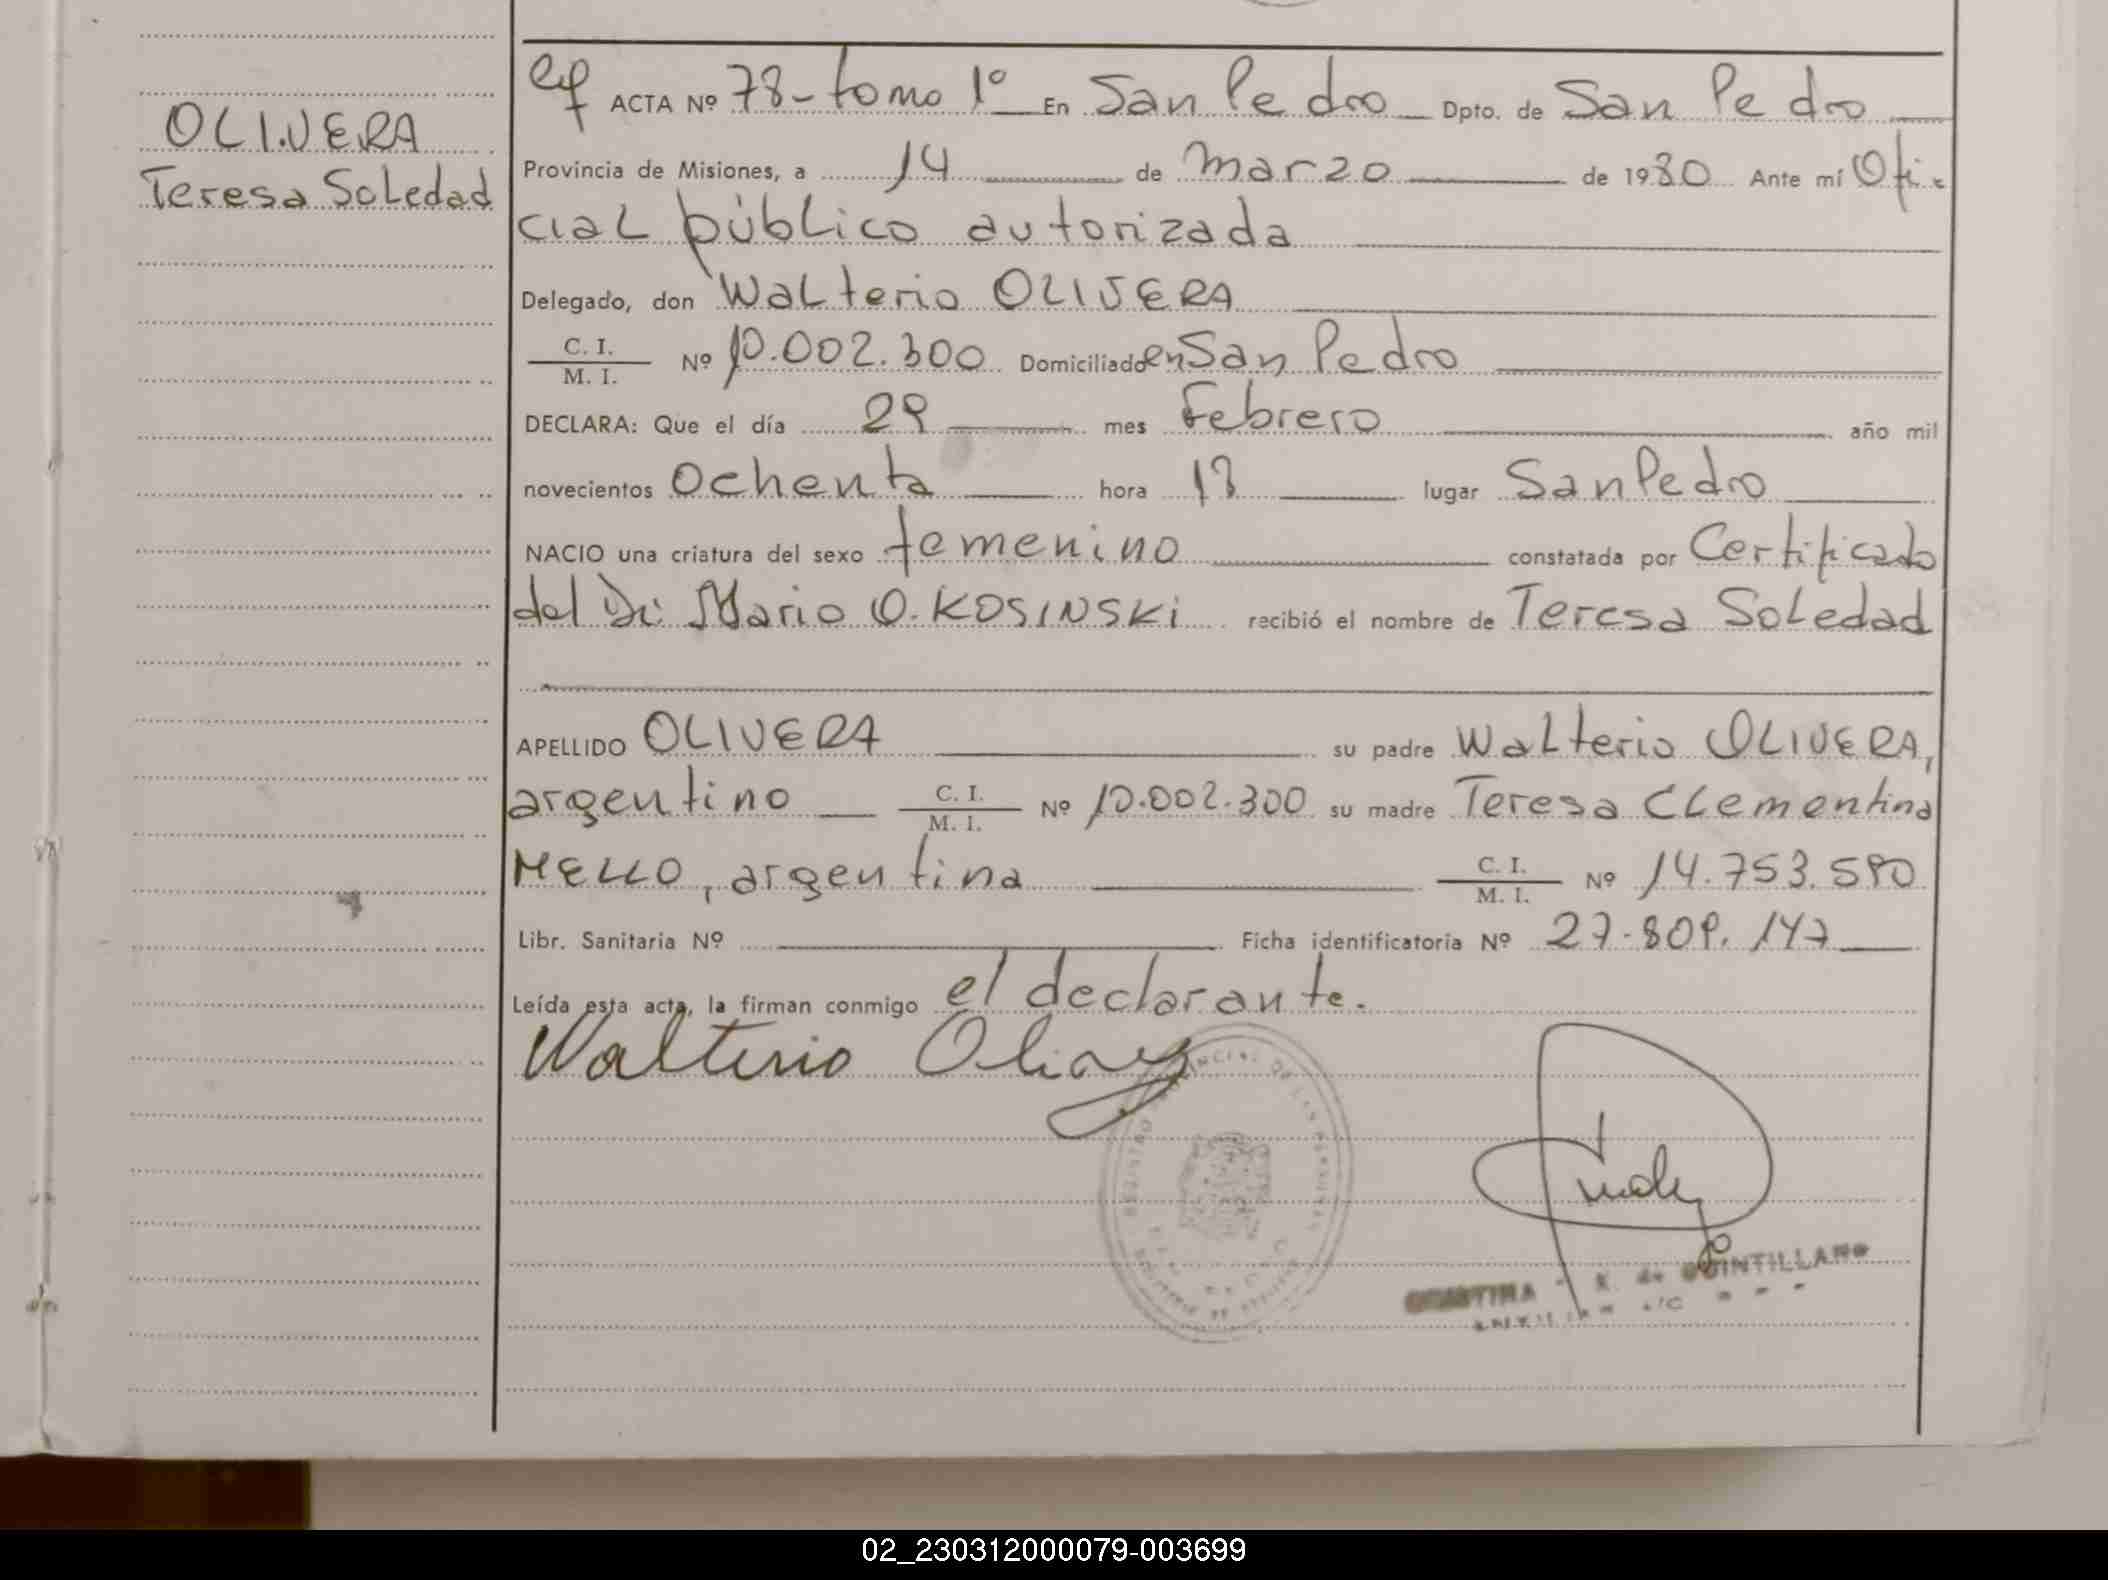 OLIVERA
Teresa Soledad
ACTA Nº 78-tomo 1º En San Pedro Dpto. de San Pedro
Provincia de Misiones, a 14 de marzo de 1980 Ante mí Ofi-
cial público autorizada
Delegado, don Walterio OLIVERA
C. I.
M. I. Nº 10.002.300 Domiciliado en San Pedro
DECLARA: Que el día 29 mes Febrero año mil
novecientos ochenta hora lugar San Pedro
NACIO una criatura del sexo femenino constatada por Certificado
del Dr. Mario O. KOSINSKi recibió el nombre de Teresa Soledad
APELLIDO OLIVERA su padre Walterio OLIVERA,
argentino C. I.
M. I. Nº 10.002.300 su madre Teresa Clementina
MELLO, argentina C. I.
M. I. Nº
Libr. Sanitaria Nº Ficha identificatoria Nº 27.809.147
Leída esta acta, la firman conmigo el declarante.
Walterio
QUINTILLANO
02_230312000079-003699